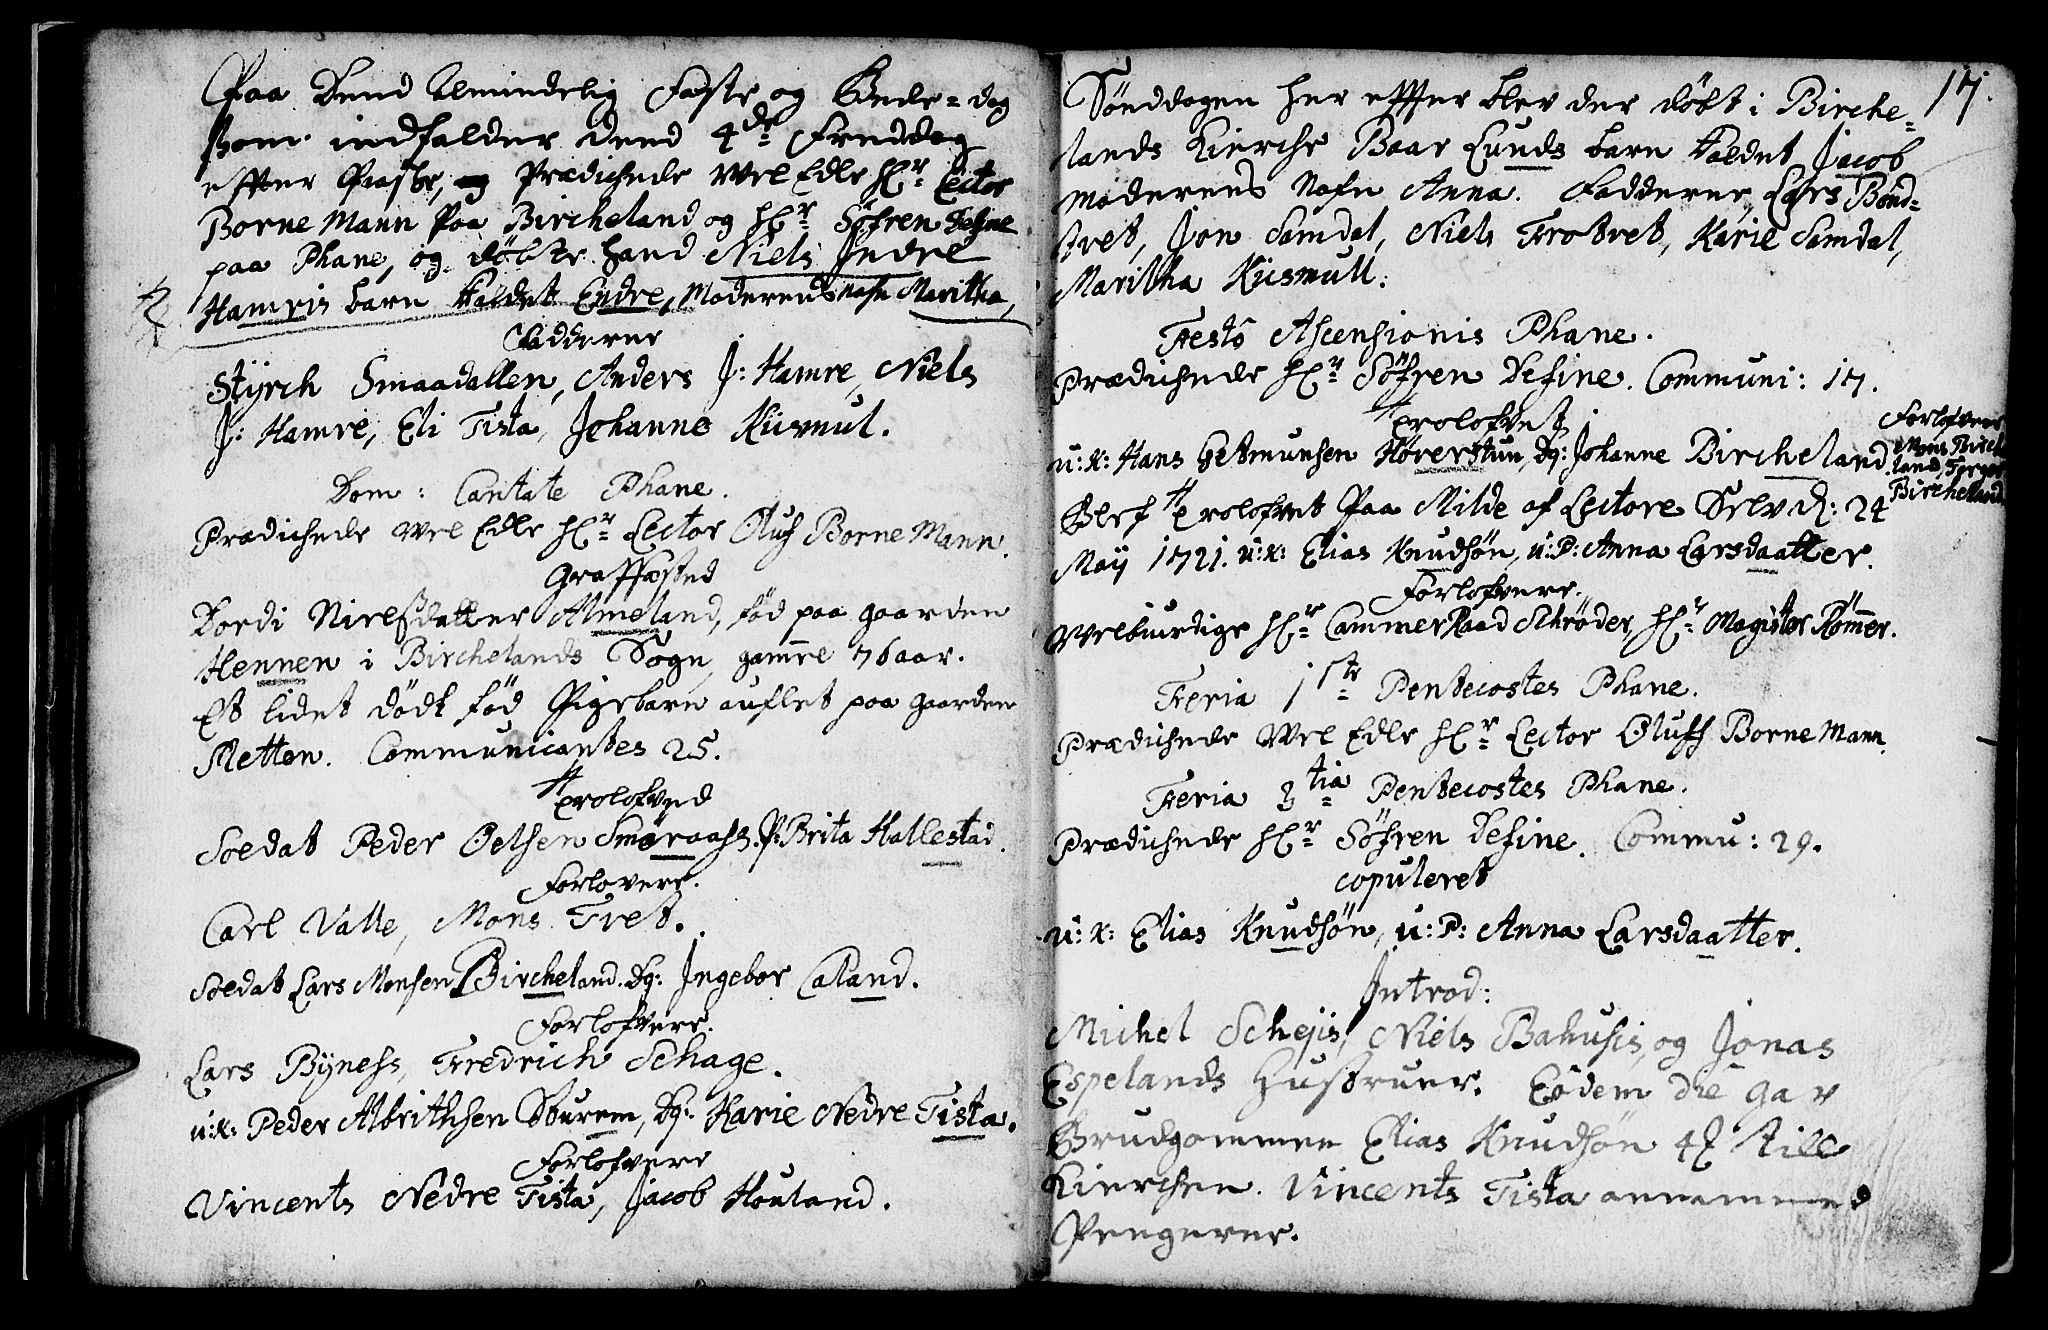 Paa Dend Almindelig Faste og Bede-dag
som indfalder dend 4de Freddag
effter Paaske, Prædichede Wel Edle Hr. Lector
Borne Mann paa Bircheland og Hr. Söfren Define
paa Phane, og döbte hand Niels Indre
Hamris barn kaldet Endre, Moderens nafn Maritha,
Fadderne
Styrch Smaadallen, Anders J: Hamre, Niels
J: Hamre, Eli Tista, Johanne Kismul.
Dom: Cantate Phane.
Prædichede Wel Edle Hr. Lector Oluf Borne Mann.
Graffæsted
Dordi Nielsdatter Almeland, föd paa gaarden
Hennen i Birchelands Sogn, gamle 76 aar.
Et lidet dödt föd Pigebarn auflet paa gaarden
Netten. Communicantes 25.
Trolofved
Soldat Peder Oelsen Smøraass. P: Brita Hallestad.
Forlovere.
Carl Valle, Mons Tret.
Soldat Lars Monsen Bircheland. Dg: Ingebor Caland.
Forlofvere.
Lars Byness, Fredrich Schage.
u: K: Peder Albrithsen Bourem, Dg: Karie Nedre Tista.
Forlofvere
Vincents Nedre Tista, Jacob Houland.
17.
Sönddagen her effter blev der döbt i Birche-
lands Kierche Baar Lunds barn kaldet Jacob
moderens Nafn Anna. Fadderne, Lars Bönd-
tret, Jon Samdal, Niels Trotvet, Karie Samdal,
Maritha Kismull.
Festo Ascensionis Phane.
Prædichede Hr. Söfren Define. Communi: 17.
Trolofvet
u: K: Hans Hørerstun, Dg: Johanne Bircheland.
Forlofvere
Mons Birche
land, Torger
Bircheland
Blef Trolofvet paa Milde af Lectore Selv d: 24
Maij 1721. u: K: Elias Knudsön, u: P: Anna Larsdaatter.
Forlofvere.
Welbiurdige Hr. Cammer Raad Schrøder, Hr. Magister Römer.
Feria 1ste Pentecostes Phane.
Prædichede Wel Edle Hr. Lector Oluff Borne Mann.
Feria 3tia Pentecostes Phane.
Prædichede Hr. Söfren Define. Commu: 29.
copuleret
u: K: Elias Knudsön, u: P: Anna Larsdaatter.
Introd:
Michel Schejis, Niels Bakusis, og Jonas
Espelands Hustruer. Eödem die gav
Brudgommen Elias Knudsön 4 till
Kierchen. Vincents Tista annammed
Pengerne.